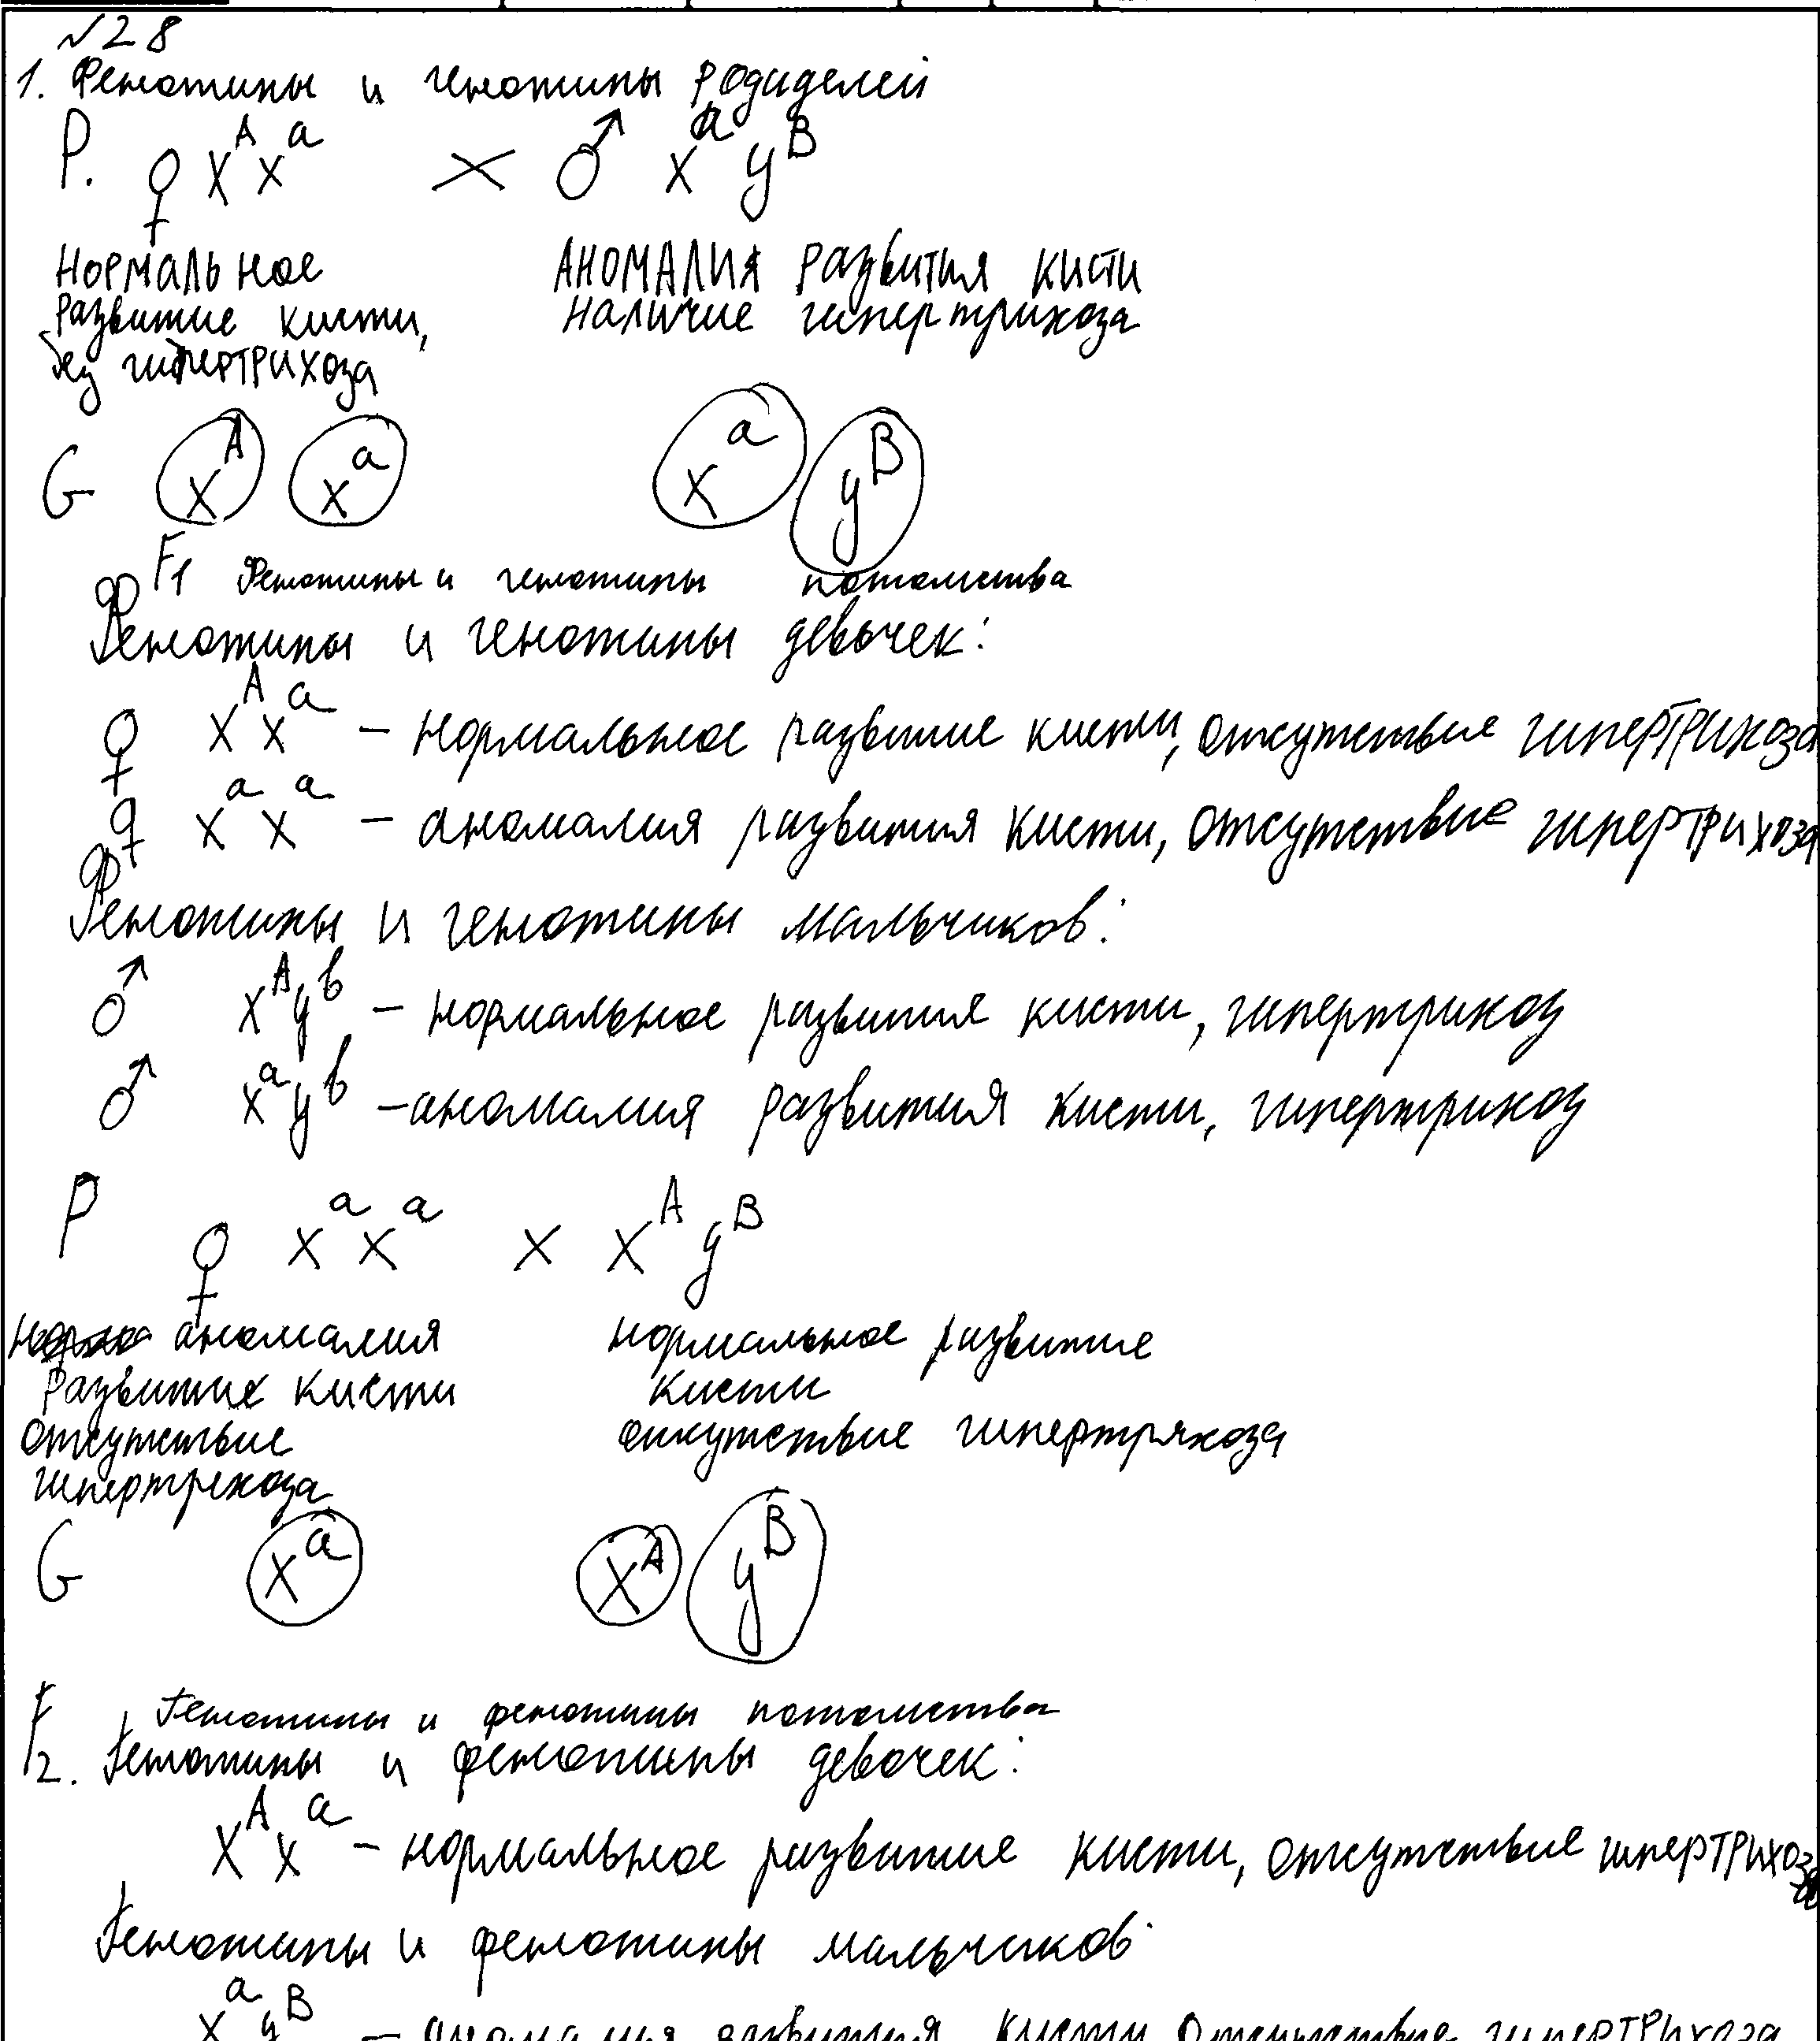 №28
1. Фенотипы и генотипы родиделей
P. ♀ X^A X^a × ♂ X^a y^B
Нормальное АНОМАЛИЯ развития кисти
развитие кисти, наличие гипертрихоза
без гипертрихоза
G X^A X^a X^a y^B
F1 Фенотипы и генотипы потомства
Фенотипы и генотипы девочек:
♀ X^A X^a – нормальное развитие кисти, отсутствие гипертрихоза
♀ X^a X^a – аномалия развития кисти, отсутствие гипертрихоза
Фенотипы и генотипы мальчиков:
♂ X^A y^b – нормальное развития кисти, гипертрихоз
♂ X^a y^b – аномалия развития кисти, гипертрихоз
P ♀ X^a X^a × X^A y^B
аномалия нормальное развитие
развития кисти кисти
отсутствие отсутствие гипертряхоза
гипертрехоза
G X^a X^A y^B
F Генотипы и фенотипы потомства
2. Генотипы и фенотипы девочек:
X^A X^a – нормальное развитие кисти, отсутствие гипертрихоза
Генотипы и фенотипы мальчиков
X^a y^B – аномалия развития кисти отсутствие гипертрихоза